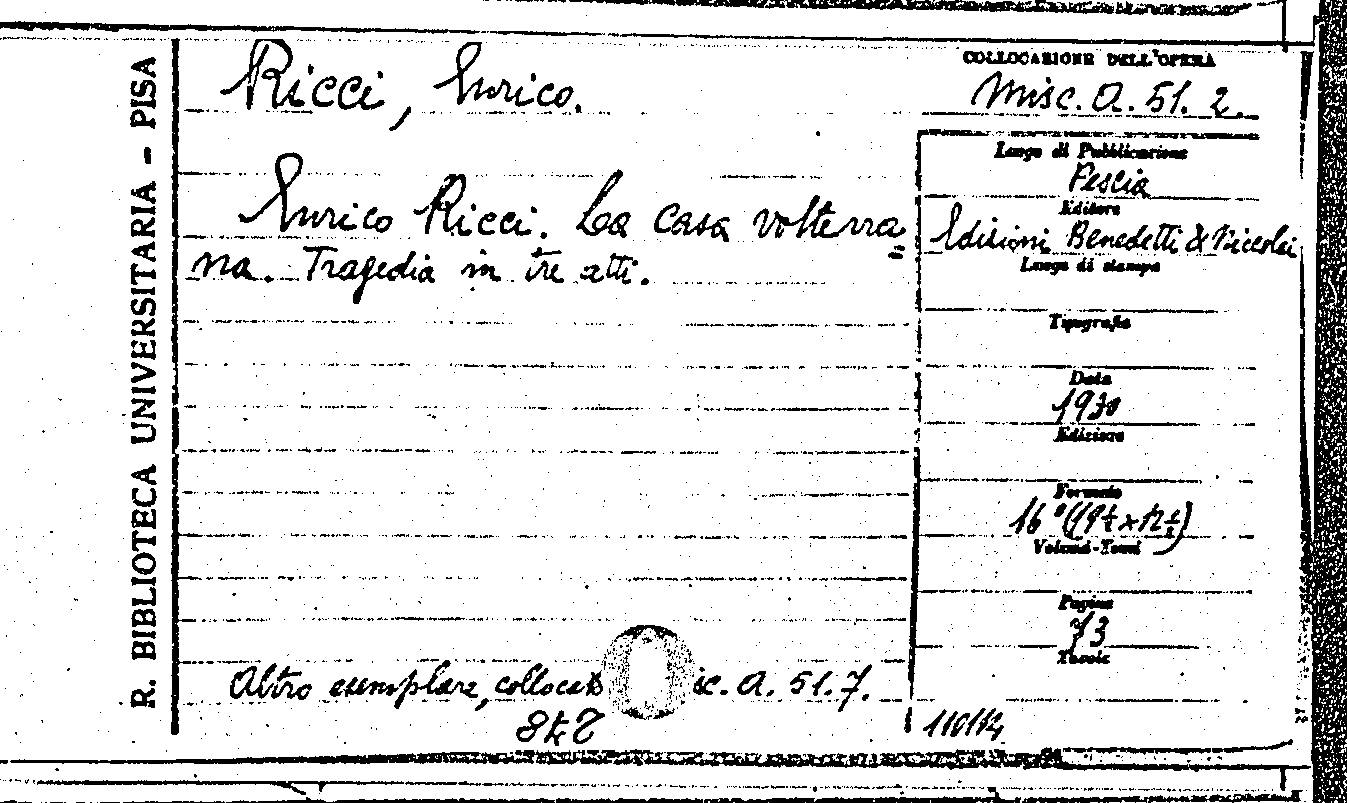 R. BIBLIOTECA UNIVERSITARIA - PISA
Ricci, Enrico.
Enrico Ricci. La casa volterra=
na. Tragedia in tre atti.
Altro esemplare, collocato ic. A. 51.7.
COLLOCAZIONE DELL'OPERA
Misc. A. 51. 2.
Luogo di Pubblicazione
Pescia
Editore
Edizioni Benedetti & Niccolai
Luogo di stampa
Tipografia
Data
1930
Edizione
Formato
16° (19½ x 12½)
Volumi-Tomi
Pagine
73
Tavole